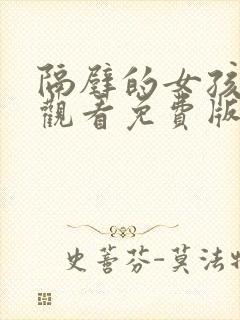 隔壁的女孩
觀看免費版
史蒼芬-莫法特